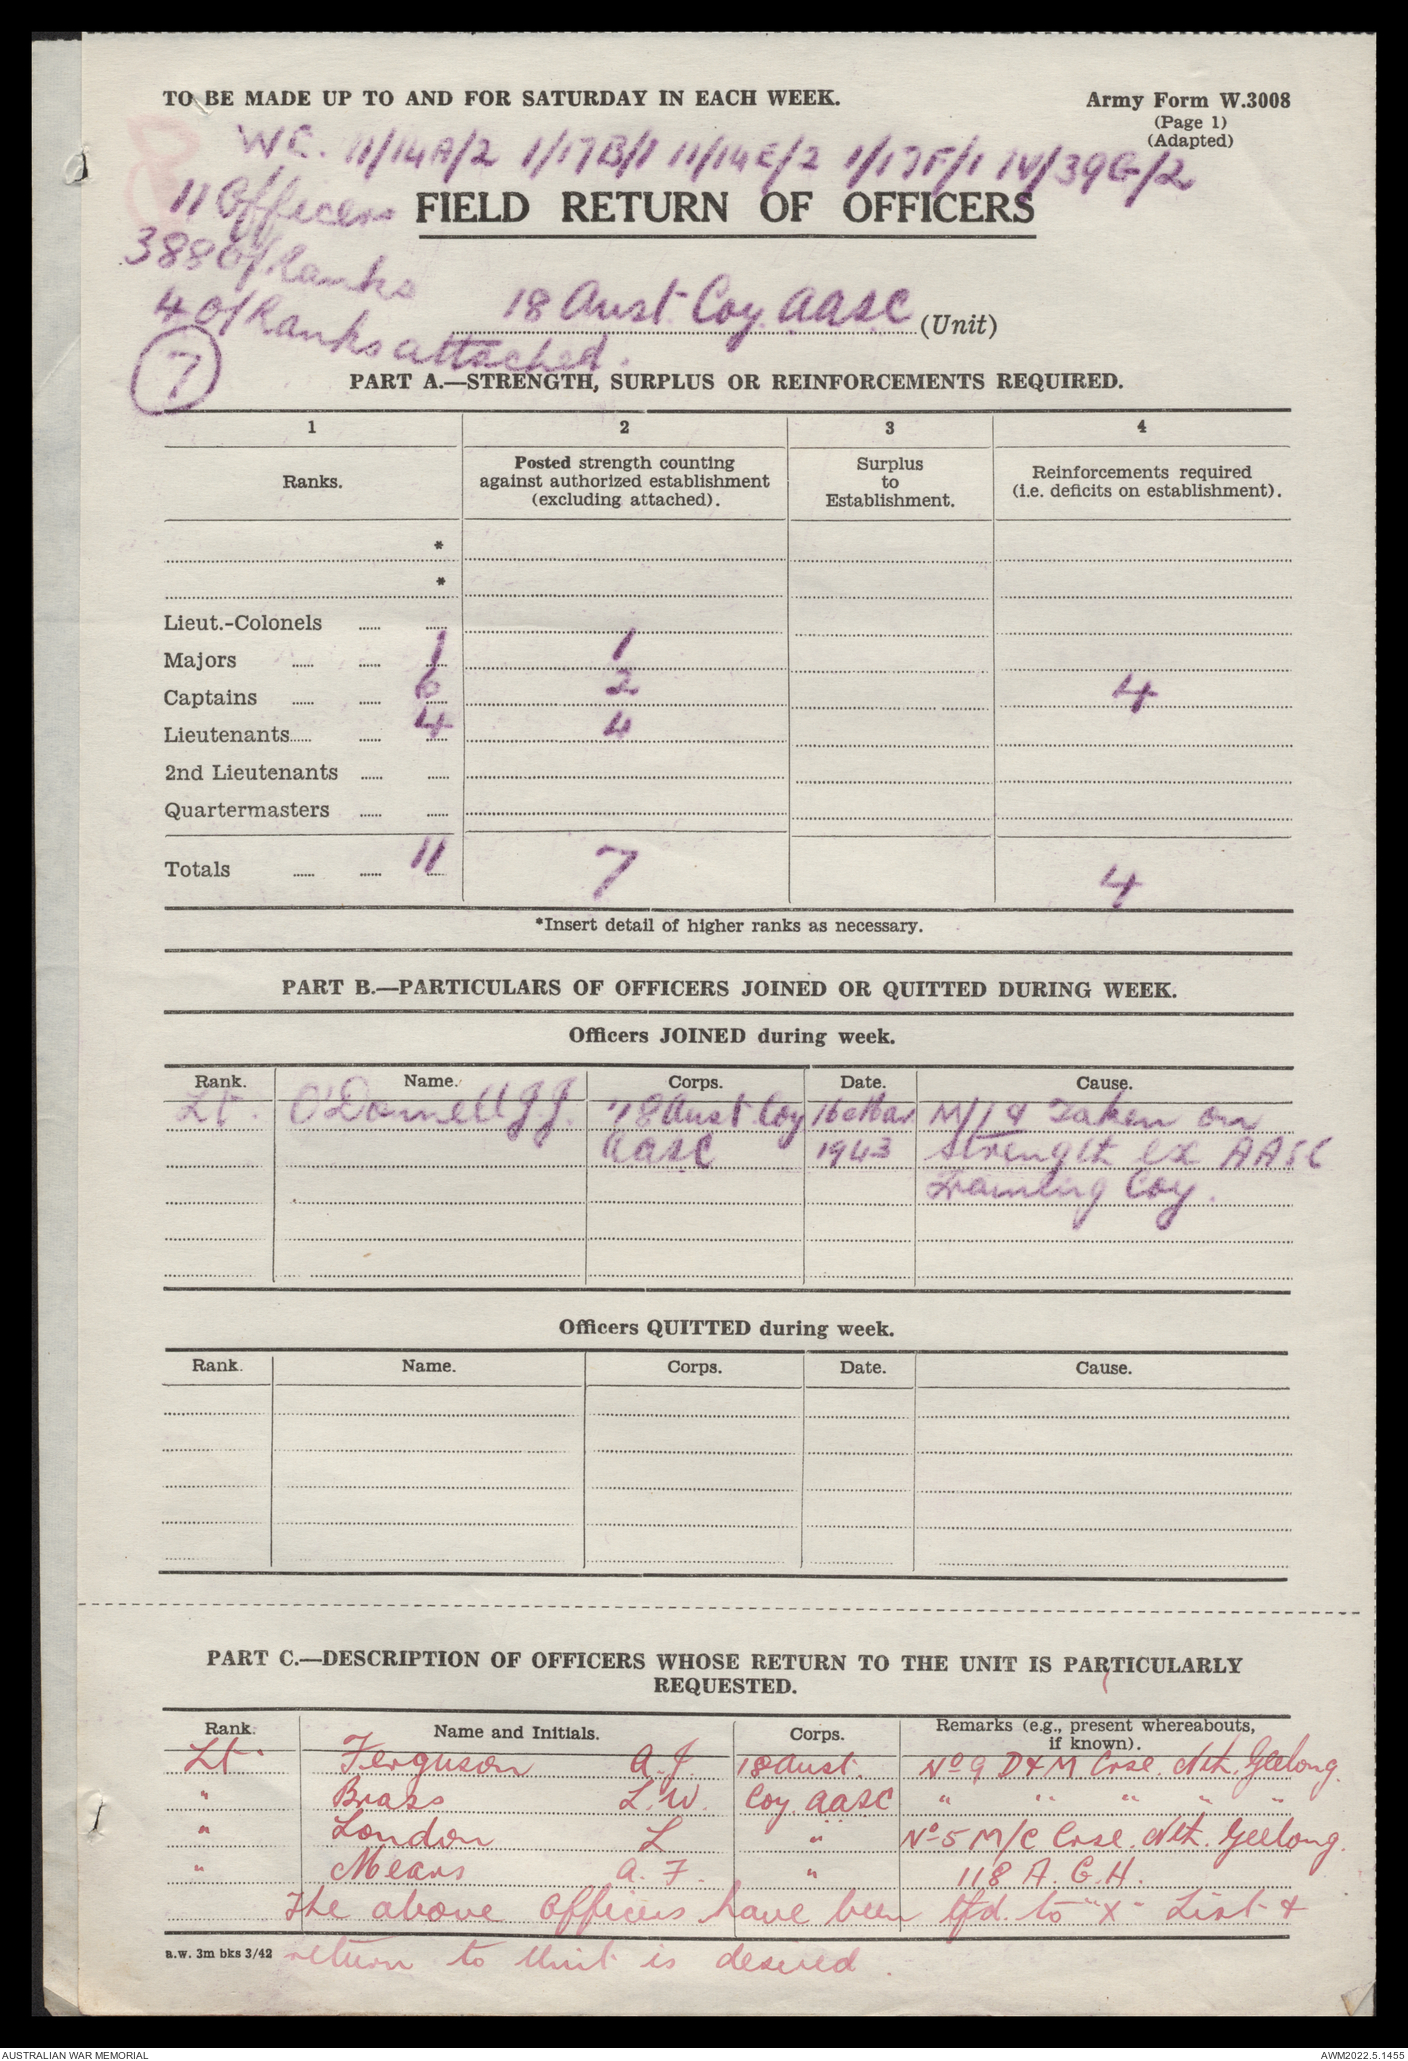 TO BE MADE UP TO AND FOR SATURDAY IN EACH WEEK.
Army Form W.3008
(Page 1)
(Adapted)
W.E. 11/14A/2 1/17B/1 11/14E/2 1/17F/1 IV/39G/2
11 Officers
388 O/Ranks
4 O/Ranks attached.
7
FIELD RETURN OF OFFICERS
18 Aust. Coy. AASC (Unit)
PART A.—STRENGTH, SURPLUS OR REINFORCEMENTS REQUIRED.
1 2 3 4
Ranks. Posted strength counting against authorized establishment (excluding attached). Surplus to Establishment. Reinforcements required (i.e. deficits on establishment).
*
*
Lieut.-Colonels
Majors 1 1
Captains 6 2 4
Lieutenants 4 4
2nd Lieutenants
Quartermasters
Totals 11 7 4
*Insert detail of higher ranks as necessary.
PART B.—PARTICULARS OF OFFICERS JOINED OR QUITTED DURING WEEK.
Officers JOINED during week.
Rank. Name. Corps. Date. Cause.
Lt. O'Donnell J.J. 18 Aust Coy 16 Mar M/I & Taken on
AASC 1943 strength ex AASC
Training Coy.
Officers QUITTED during week.
Rank. Name. Corps. Date. Cause.
PART C.—DESCRIPTION OF OFFICERS WHOSE RETURN TO THE UNIT IS PARTICULARLY
REQUESTED.
Rank. Name and Initials. Corps. Remarks (e.g., present whereabouts, if known).
Lt. Ferguson A.J. 18 Aust. No 9 D & M Crse. Nth. Geelong.
" Brass L.W. Coy. AASC " " " " "
" London L " No 5 M/C Crse. Nth. Geelong.
" Mears A.F. " 118 A.G.H.
The above Officers have been tfd. to "X" List &
return to Unit is desired.
a.w. 3m bks 3/42
AUSTRALIAN WAR MEMORIAL
AWM2022.5.1455